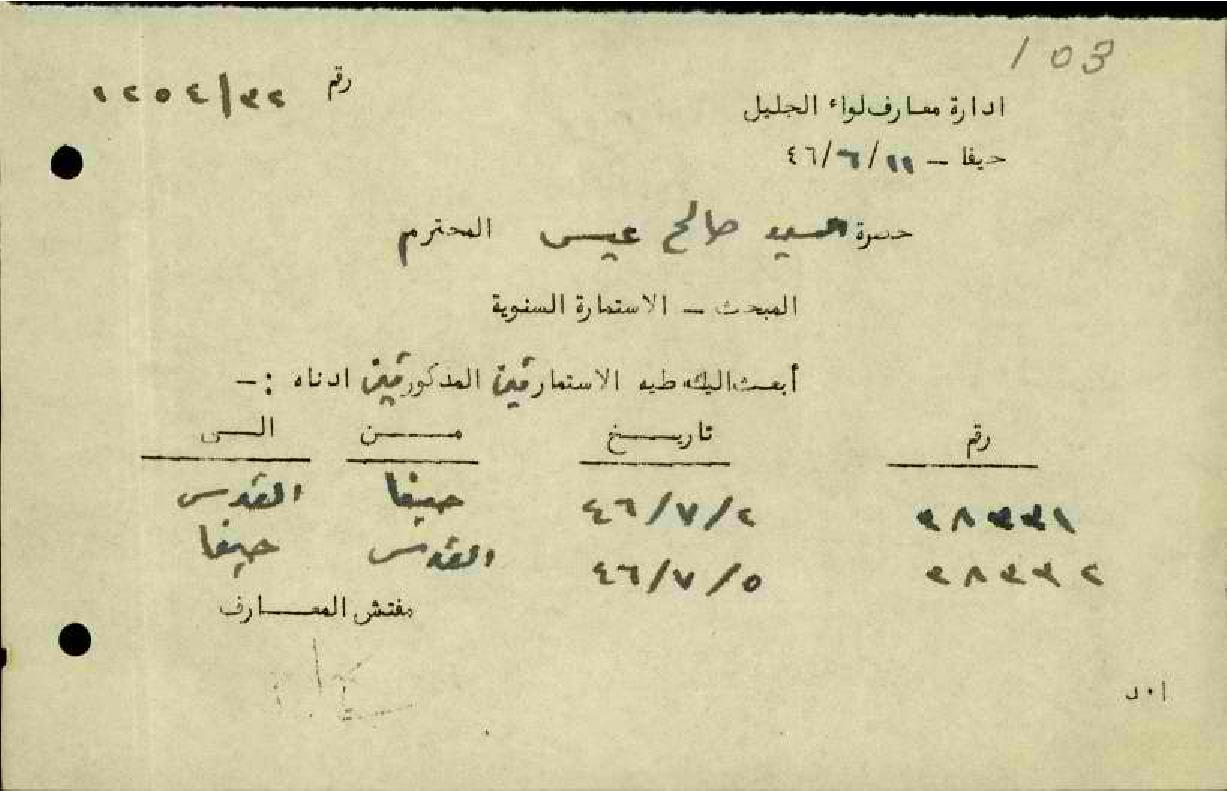 103
رقم ١٢٥٤/٣٢
ادارة معارف لواء الجليل
حيفا – ٤٦/٦/١١
حضرة السيد صالح عيسى المحترم
المبحث – الاستمارة السنوية
أبعث اليك طيه الاستمارتين المذكورتين ادناه :–
رقم تاريخ من الى
٣٨٣٣١ ٤٦/٧/٢ حيفا القدس
٣٨٣٣٢ ٤٦/٧/٥ القدس حيفا
مفتش المعارف
ا٠د